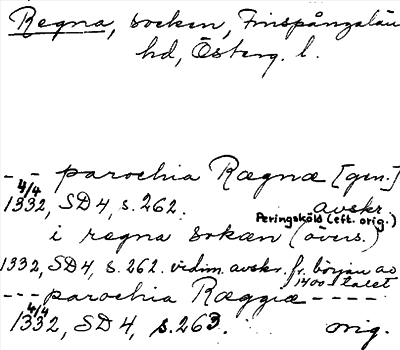 Regna, socken, Finspångalän
hd, Österg. l.
- - parochia Rægnæ [gen.]
4/4
1332, SD 4, s. 262. avskr.
Peringsköld (eft. orig.)
i regna sokæn (övers.)
1332, SD 4, s. 262. vidim. avskr. fr. början av
1400-talet
- - - parochia Ræggnæ - - - -
4/4
1332, SD 4, s. 263. orig.